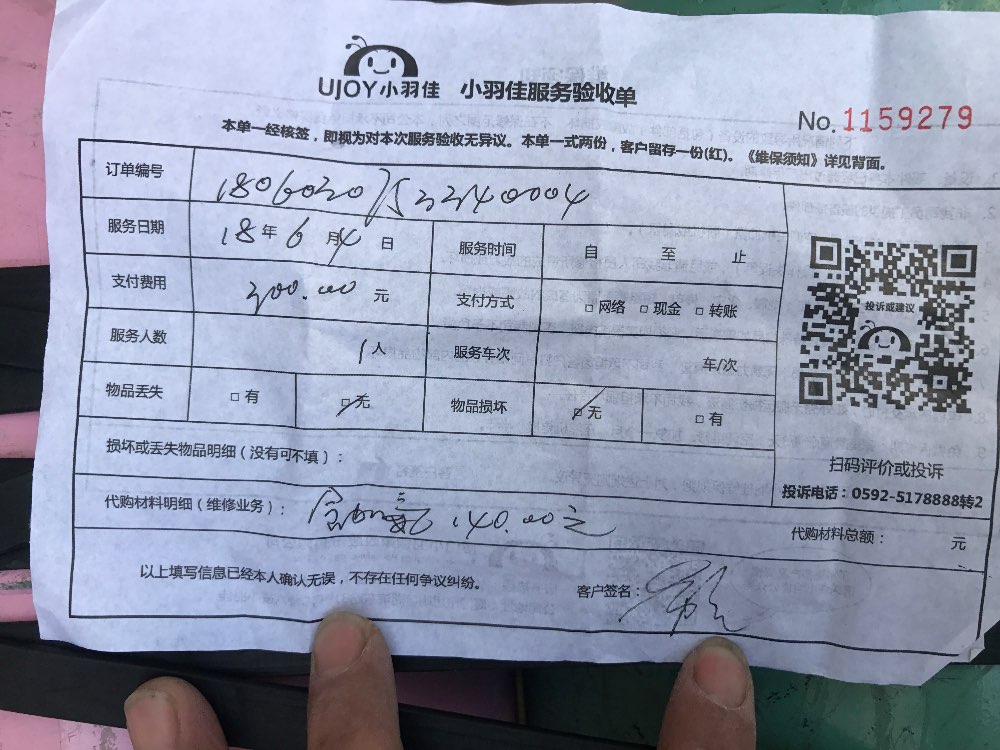 UJOY小羽佳 小羽佳服务验收单
No. 1159279
本单一经核签，即视为对本次服务验收无异议。本单一式两份，客户留存一份(红)。《维保须知》详见背面。
订单编号 18060307522140004
服务日期 18年6月4日 服务时间 自 至 止
支付费用 300.00元 支付方式 □网络 □现金 □转账
服务人数 1人 服务车次 车/次
物品丢失 □有 □无 物品损坏 □无 □有
损坏或丢失物品明细（没有可不填）：
代购材料明细（维修业务）： 含加氟 140.00元
代购材料总额： 元
以上填写信息已经本人确认无误，不存在任何争议纠纷。 客户签名：
投诉或建议
扫码评价或投诉
投诉电话：0592-5178888转2